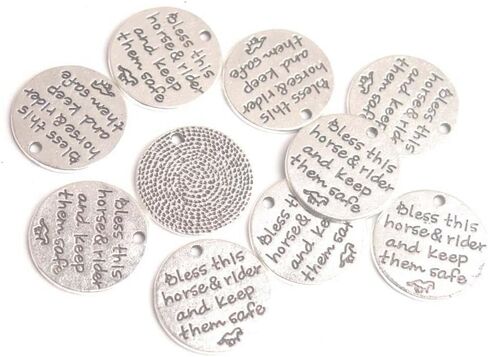 Bless this
horse & rider
and keep
them safe
Bless this
horse & rider
and keep
them safe
Bless this
horse & rider
and keep
them safe
Bless this
horse & rider
and keep
them safe
Bless this
horse & rider
and keep
them safe
Bless this
horse & rider
and keep
them safe
Bless
horse &
and keep
them safe
Bless this
horse & rider
and keep
them safe
Bless this
horse & rider
and keep
them safe